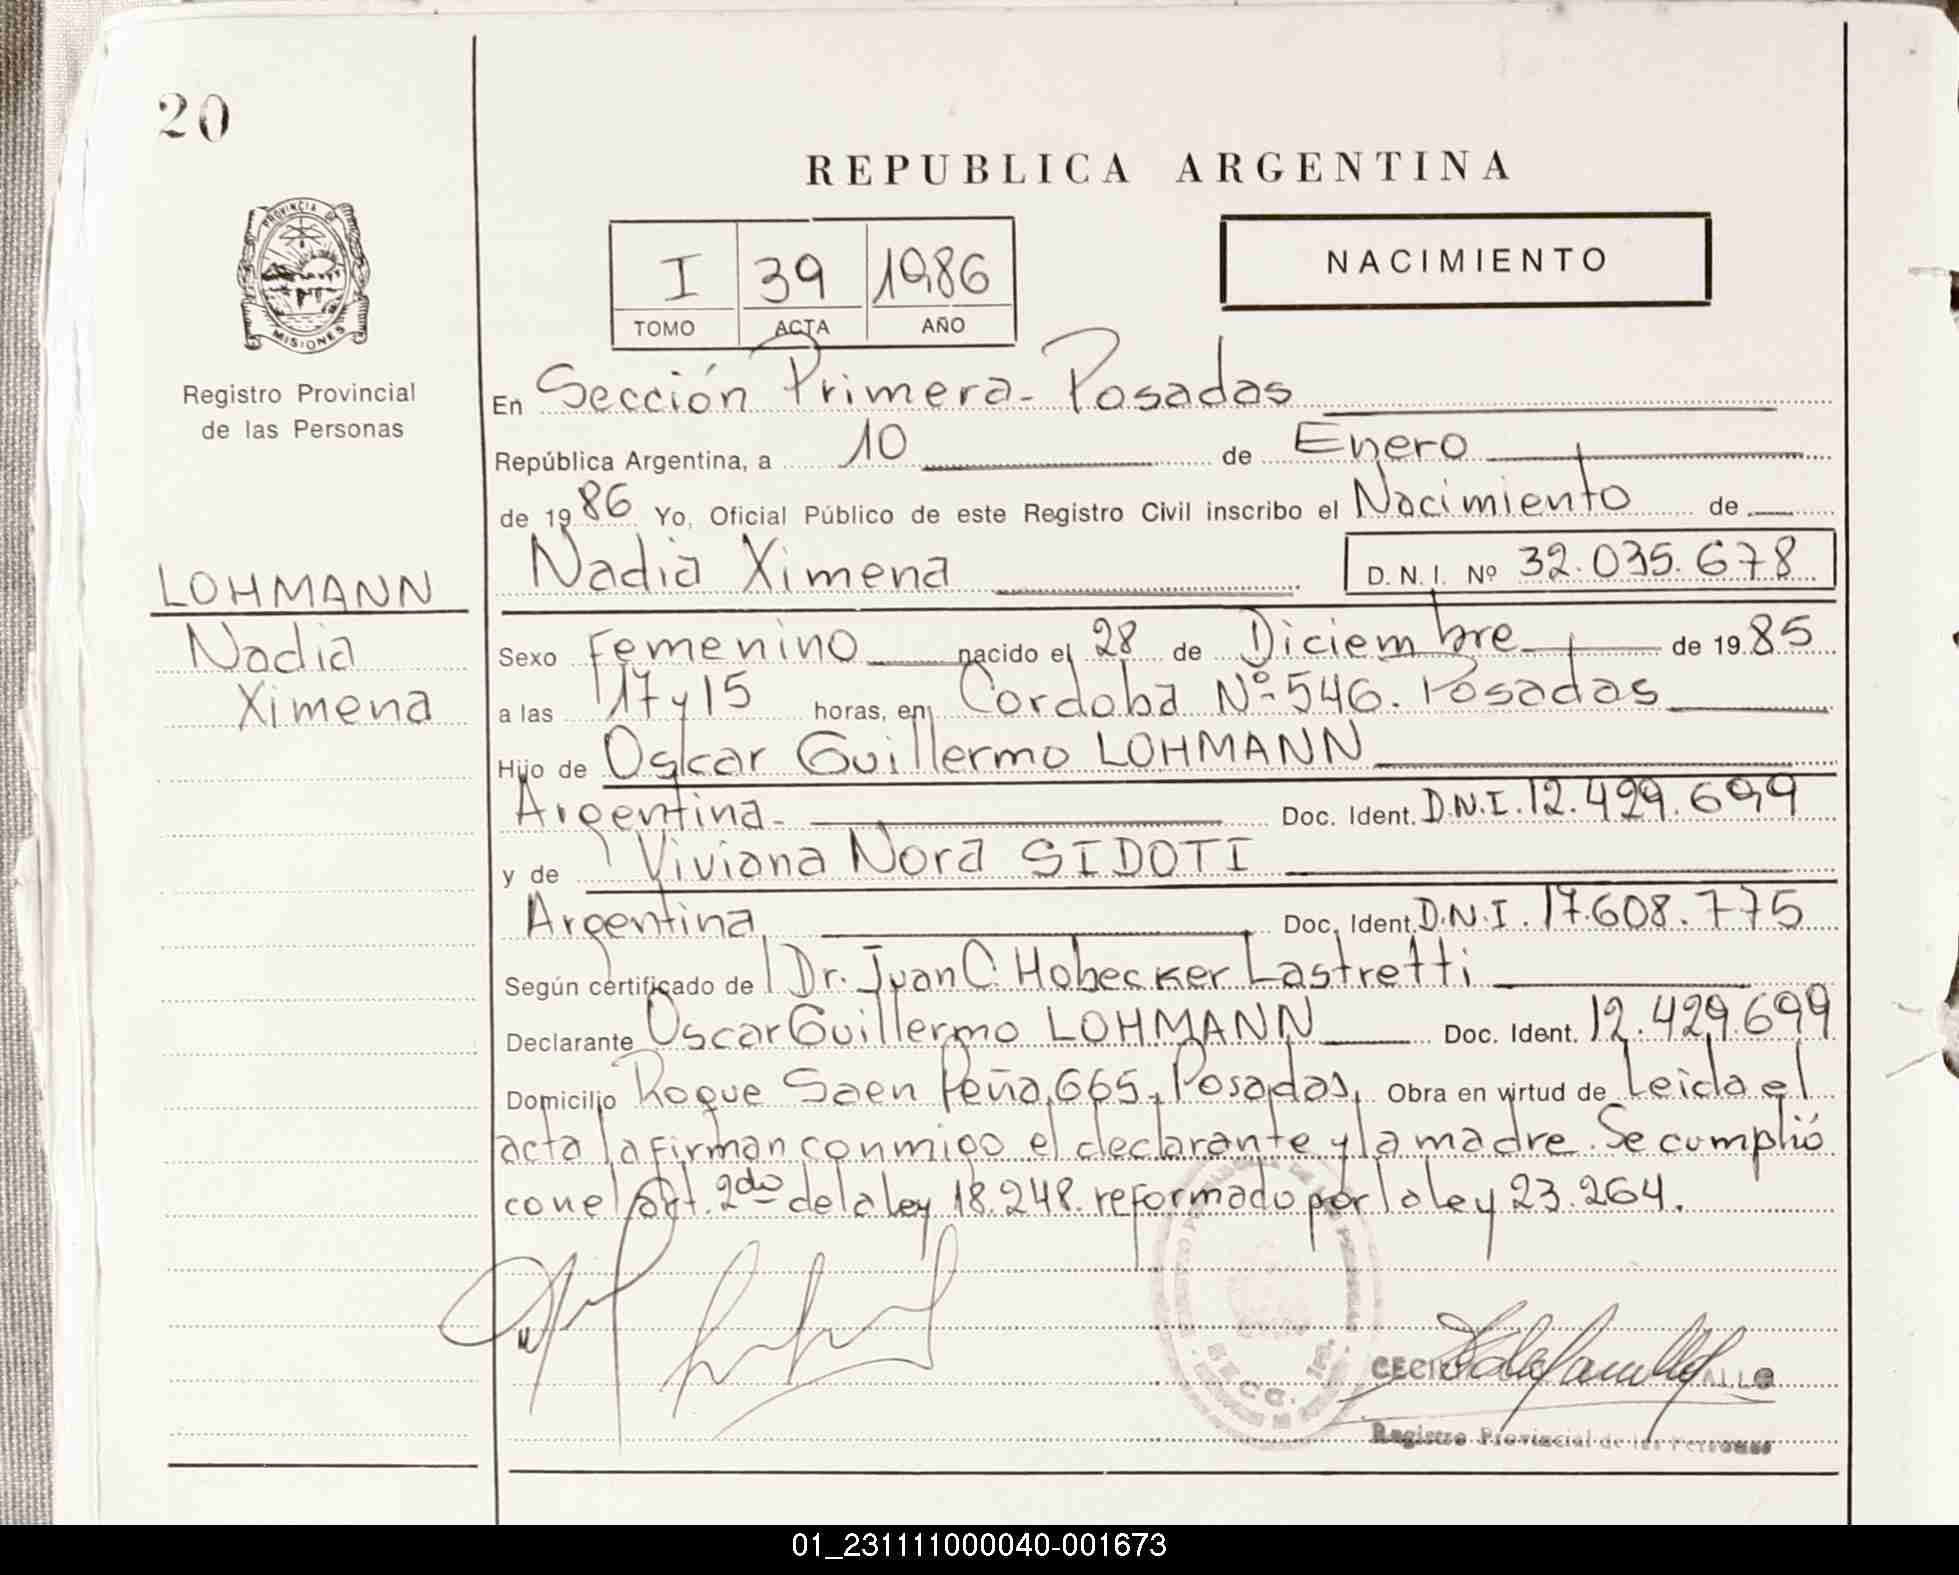 20
REPUBLICA ARGENTINA
PROVINCIA DE
MISIONES
I 39 1986
TOMO ACTA AÑO
NACIMIENTO
Registro Provincial
de las Personas
En Sección Primera - Posadas
República Argentina, a 10 de Enero
de 1986 Yo, Oficial Público de este Registro Civil inscribo el Nacimiento de
LOHMANN
Nadia Ximena D.N.I. Nº 32.035.678
Nadia
Ximena
Sexo Femenino nacido el 28 de Diciembre de 1985
a las 17 y 15 horas, en Cordoba Nº 546. Posadas
Hijo de Oscar Guillermo LOHMANN
Argentina - Doc. Ident. D.N.I. 12.429.699
y de Viviana Nora SIDOTI
Argentina Doc. Ident. D.N.I. 17.608.775
Según certificado de Dr. Juan C. Hobecker Lastretti
Declarante Oscar Guillermo LOHMANN Doc. Ident. 12.429.699
Domicilio Roque Saen Peña 665, Posadas, Obra en virtud de Leida el
acta la firman conmigo el declarante y la madre. Se cumplió
con el Art. 2do de la ley 18.248. reformado por la ley 23.264.
SECC. 1ra.
Registro Provincial de las Personas
01_231111000040-001673